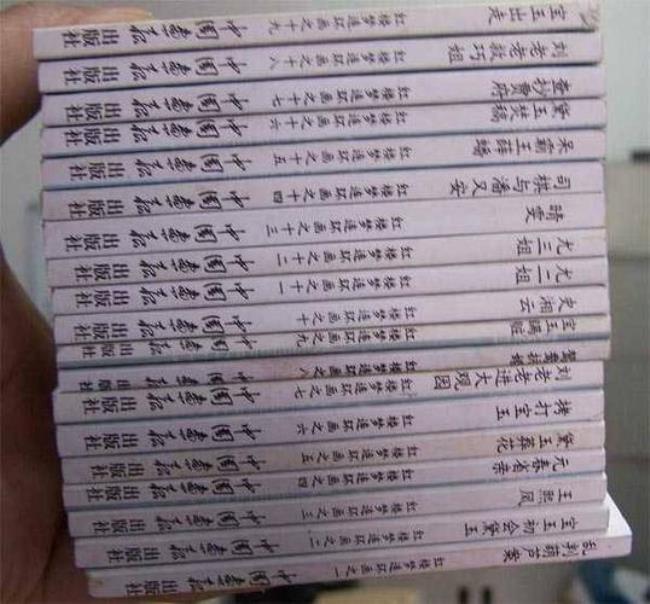 乱判葫芦案 红楼梦连环画之一 中国画报出版社
宝玉初会黛玉 红楼梦连环画之二 中国画报出版社
王熙凤 红楼梦连环画之三 中国画报出版社
元春省亲 红楼梦连环画之四 中国画报出版社
黛玉葬花 红楼梦连环画之五 中国画报出版社
拷打宝玉 红楼梦连环画之六 中国画报出版社
刘老老进大观园 红楼梦连环画之七 中国画报出版社
鸳鸯抗婚 红楼梦连环画之八 中国画报出版社
宝玉瞒赃 红楼梦连环画之九 中国画报出版社
史湘云 红楼梦连环画之十 中国画报出版社
尤二姐 红楼梦连环画之十一 中国画报出版社
尤三姐 红楼梦连环画之十二 中国画报出版社
晴雯 红楼梦连环画之十三 中国画报出版社
司棋与潘又安 红楼梦连环画之十四 中国画报出版社
呆霸王薛蟠 红楼梦连环画之十五 中国画报出版社
黛玉焚稿 红楼梦连环画之十六 中国画报出版社
查抄贾府 红楼梦连环画之十七 中国画报出版社
刘老老救巧姐 红楼梦连环画之十八 中国画报出版社
宝玉出走 红楼梦连环画之十九 中国画报出版社